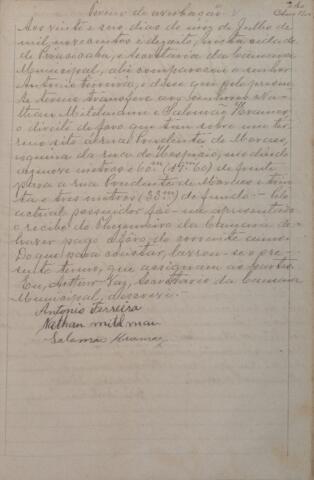 Termo de averbação
Aos vinte e seis dias do mez de Julho de
mil novecentos e dezoito, nesta cidade
de Piracicaba, e Secretaria da Camara
Municipal, ahi compareceu o senhor
Antonio Ferreira, e disse que pelo presen-
te termo transfere aos senhores Na-
than Mildmann e Salomão Kramer,
o direito de fôro que tem sobre um ter-
reno sito á rua Prudentes de Moraes,
esquina da rua do Rosario, medindo
dezenove metros e 60 m (19m 60) de frente
para a rua Prudente de Moraes e trin-
ta e tres metros (33m) de fundo. Pelo
actual possuidor foi-me apresentado
o recibo da Thezouraria da Camara de
haver pago o fôro do corrente anno.
Do que para constar, lavrou-se o pre-
sente termo, que assignam as partes.
Eu, Arthur Vaz, Secretario da Camara
Municipal, o escrevi.
Antonio Ferreira
Nathan mildman
Salomão Kramer